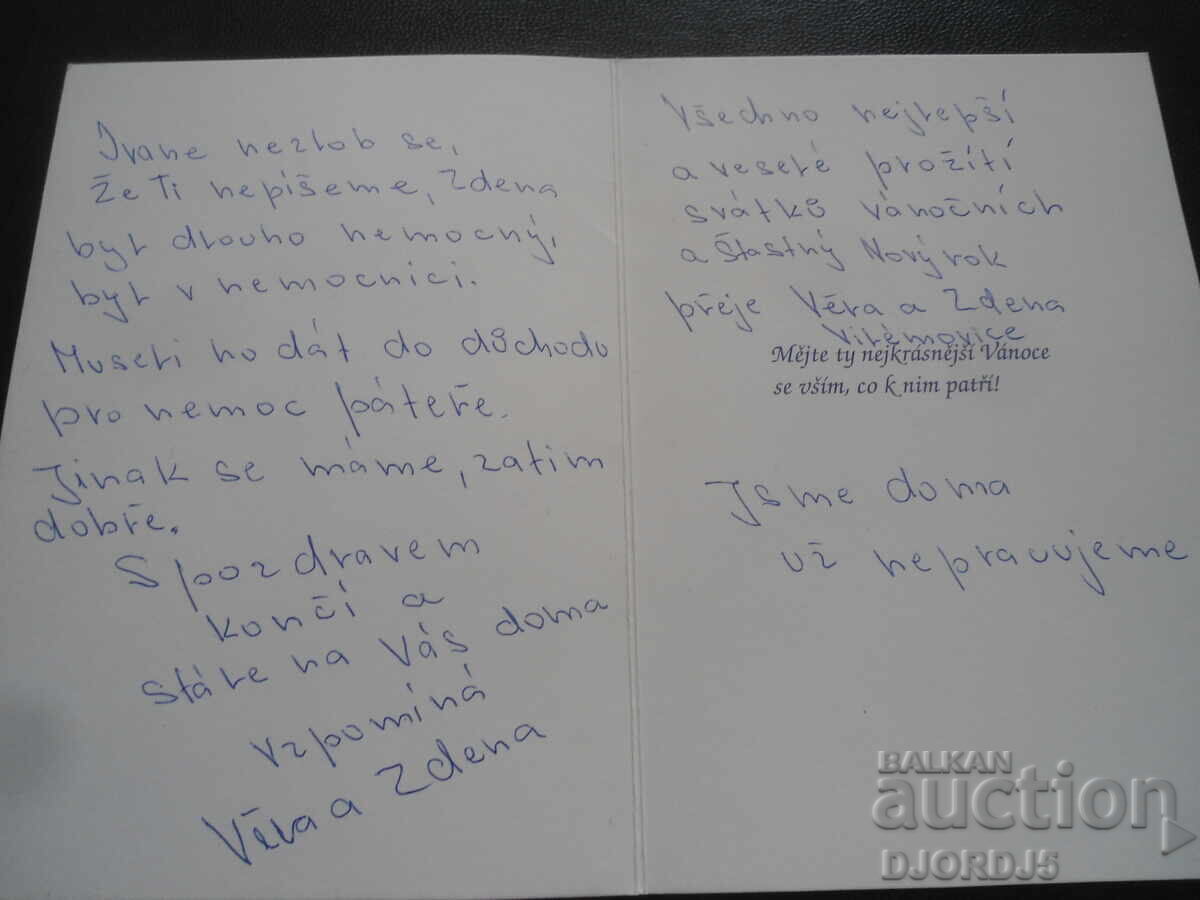 Ivane nezlob se,
že Ti nepíšeme, Zdena
byl dlouho nemocný,
byl v nemocnici.
Museli ho dát do důchodu
pro nemoc páteře.
Jinak se máme, zatim
dobře.
S pozdravem
končí a
stále na Vás doma
vzpomíná
Věra a Zdena
Všechno nejlepší
a veselé prožití
svátků vánočních
a štastný Nový rok
přeje Věra a Zdena
Vilémovice
Mějte ty nejkrásnější Vánoce
se vším, co k nim patří!
Jsme doma
už nepracujeme
BALKAN
auction
DJORDJ5